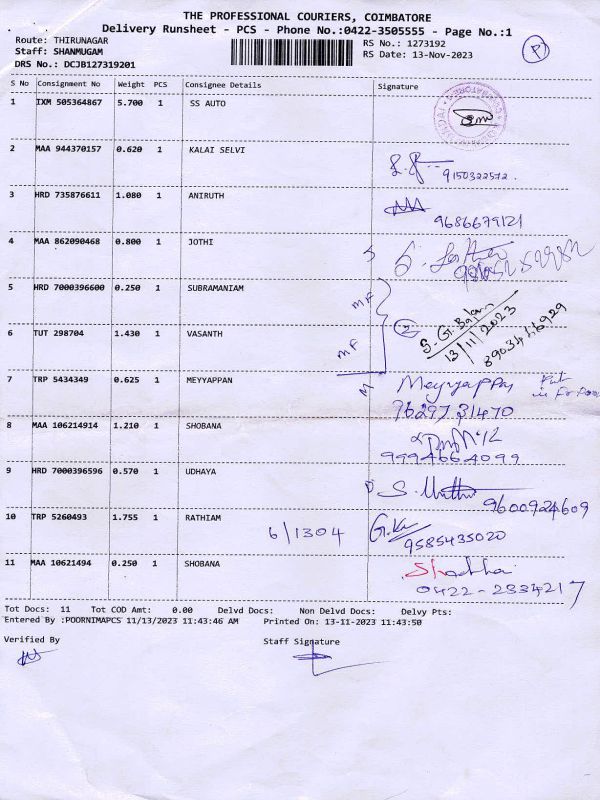 THE PROFESSIONAL COURIERS, COIMBATORE
Delivery Runsheet - PCS - Phone No.:0422-3505555 - Page No.:1
Route: THIRUNAGAR
RS No.: 1273192
P
Staff: SHANMUGAM
RS Date: 13-Nov-2023
DRS No.: DCJB127319201
S No Consignment No Weight PCS Consignee Details Signature
1 IXM 505364867 5.700 1 SS AUTO
2 MAA 944370157 0.620 1 KALAI SELVI
9150322572.
3 HRD 735876611 1.080 1 ANIRUTH
9686679121
4 MAA 862090468 0.800 1 JOTHI
5 HRD 7000396600 0.250 1 SUBRAMANIAM
M.F
2
S. G. Balan
13/11/2023
8903446929
6 TUT 298704 1.430 1 VASANTH
M F
7 TRP 5434349 0.625 1 MEYYAPPAN
M
Meyyappan
9629731470
8 MAA 106214914 1.210 1 SHOBANA
9994664099
9 HRD 7000396596 0.570 1 UDHAYA
D S. Muthu
9600924609
10 TRP 5260493 1.755 1 RATHIAM 6/1304
9585435020
11 MAA 10621494 0.250 1 SHOBANA
0422-2334217
Tot Docs: 11 Tot COD Amt: 0.00 Delvd Docs: Non Delvd Docs: Delvy Pts:
Entered By :POORNIMAPCS 11/13/2023 11:43:46 AM Printed On: 13-11-2023 11:43:50
Verified By Staff Signature